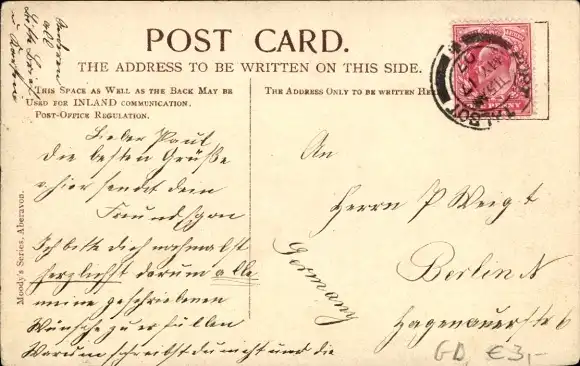 POST CARD.
THE ADDRESS TO BE WRITTEN ON THIS SIDE.
THIS SPACE AS WELL AS THE BACK MAY BE
USED FOR INLAND COMMUNICATION.
POST-OFFICE REGULATION.
THE ADDRESS ONLY TO BE WRITTEN HE
PORT TALBOT
PENNY
Lieber Paul
die besten Grüße
hier sendet dein
Freund Egon
Ich bitte dich nochmalst
herzlichst darum alle
meine geschriebenen
Wünsche zu erfüllen
Warum schreibst du nicht und die
An
Herrn P Weigt
Berlin N
Hagenauerstr 6
Germany
Moody's Series, Aberavon.
GD €3,-